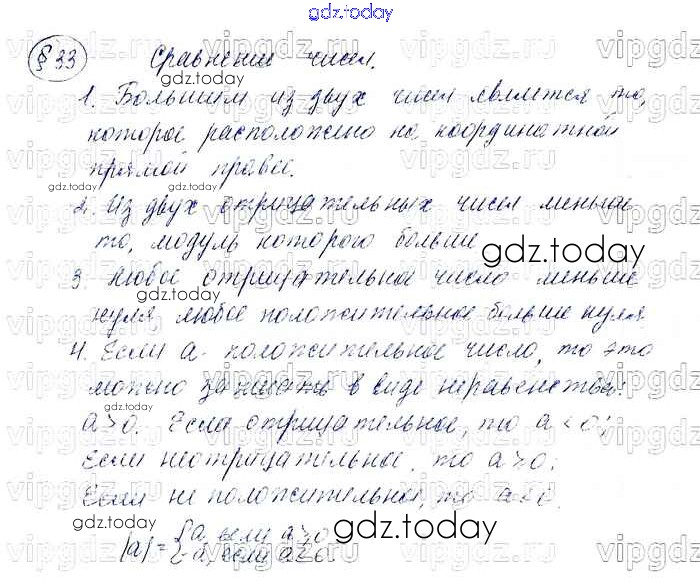 gdz.today
§ 33 Сравнение чисел.
1. Большим из двух чисел является то,
которое расположено на координатной
прямой правее.
2. Из двух отрицательных чисел меньше
то, модуль которого больше
3. Любое отрицательное число меньше
нуля любое положительное больше нуля
4. Если a - положительное число, то это
можно записать в виде неравенства:
a > 0. Если отрицательное, то a < 0;
Если неотрицательное, то a ⩾ 0;
Если не положительное, то a ⩽ 0.
|a| = { a, если a ⩾ 0
{ -a, если a < 0.